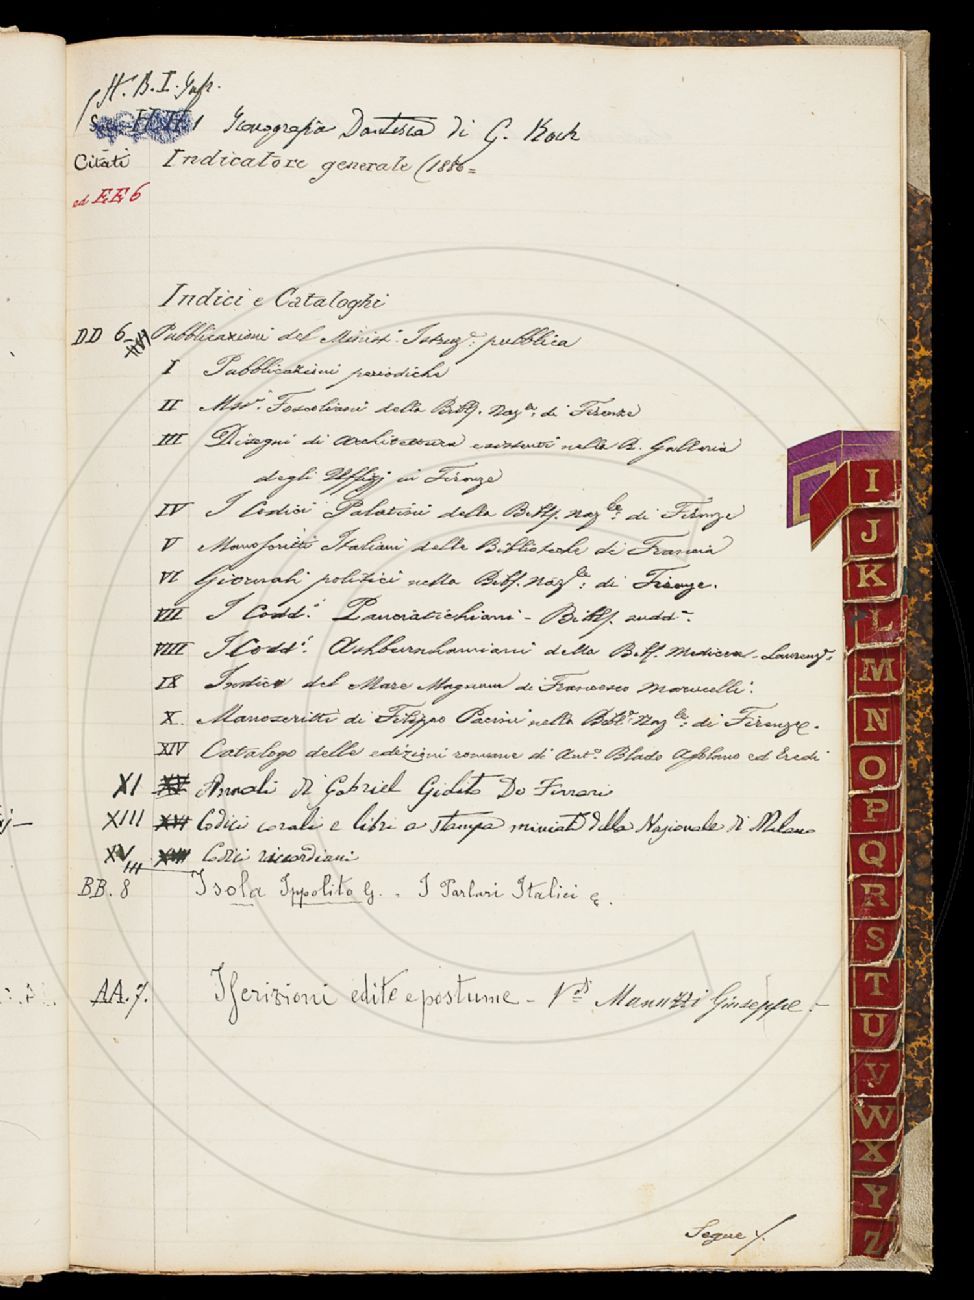 H. B. I. Inf.
Iconografia Dantesca di G. Koch
Citati Indicatore generale (1886=
ed EE 6
Indici e Cataloghi
DD 6 Pubblicazioni del Minist. Istruz.e pubblica
I Pubblicazioni periodiche
II Mss.i Foscoliani della Bibl. Naz.le di Firenze
III Disegni di Architettura esistenti nella R. Galleria
degli Uffizj in Firenze
IV I Codici Palatini della Bibl. Naz.le: di Firenze
V Manoscritti Italiani delle Biblioteche di Francia
VI Giornali politici nella Bibl. Naz.le: di Firenze.
VII I Codd.i Panciatichiani - Bibl. sudd.a
VIII I Codd.i Ashburnhamiani della Bibl. Medicea-Laurenz.a
IX Indice del Mare Magnum di Francesco Marucelli.
X. Manoscritti di Filippo Pacini nella Bibl.a Naz.le: di Firenze.
XIV Catalogo delle edizioni romane di Ant.o Blado Asolano ed Eredi
XI XV Annali di Gabriel Giolito De Ferrari
XIII XVI Codici corali e libri a stampa miniati della Nazionale di Milano
XV Codici ricordiani
BB. 8 Isola Ippolito G. - I Parlari Italici &.
AA. 7. Iscrizioni edite e postume - V.di Manuzzi Giuseppe -
Segue /.
I
J
K
L
M
N
O
P
Q
R
S
T
U
V
W
X
Y
Z